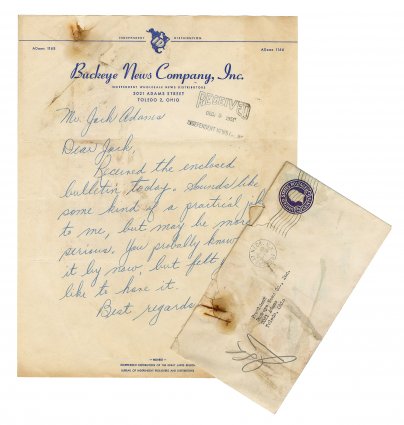 INDEPENDENT DISTRIBUTION
ADams 1155
ADams 1156
Buckeye News Company, Inc.
INDEPENDENT WHOLESALE NEWS DISTRIBUTORS
2021 ADAMS STREET
TOLEDO 2, OHIO
RECEIVED
INDEPENDENT NEWS
Mr. Jack Adams
Dear Jack,
Received the enclosed
bulletin today. Sounds like
some kind of a practical
to me, but may be more
serious. You probably know
it by now, but felt
like to have it.
Best regards
MEMBER
INDEPENDENT DISTRIBUTORS OF THE GREAT LAKES REGION
BUREAU OF INDEPENDENT PUBLISHERS AND DISTRIBUTORS
President
Buckeye News Co., Inc.
2021 Adams
Toledo, Ohio